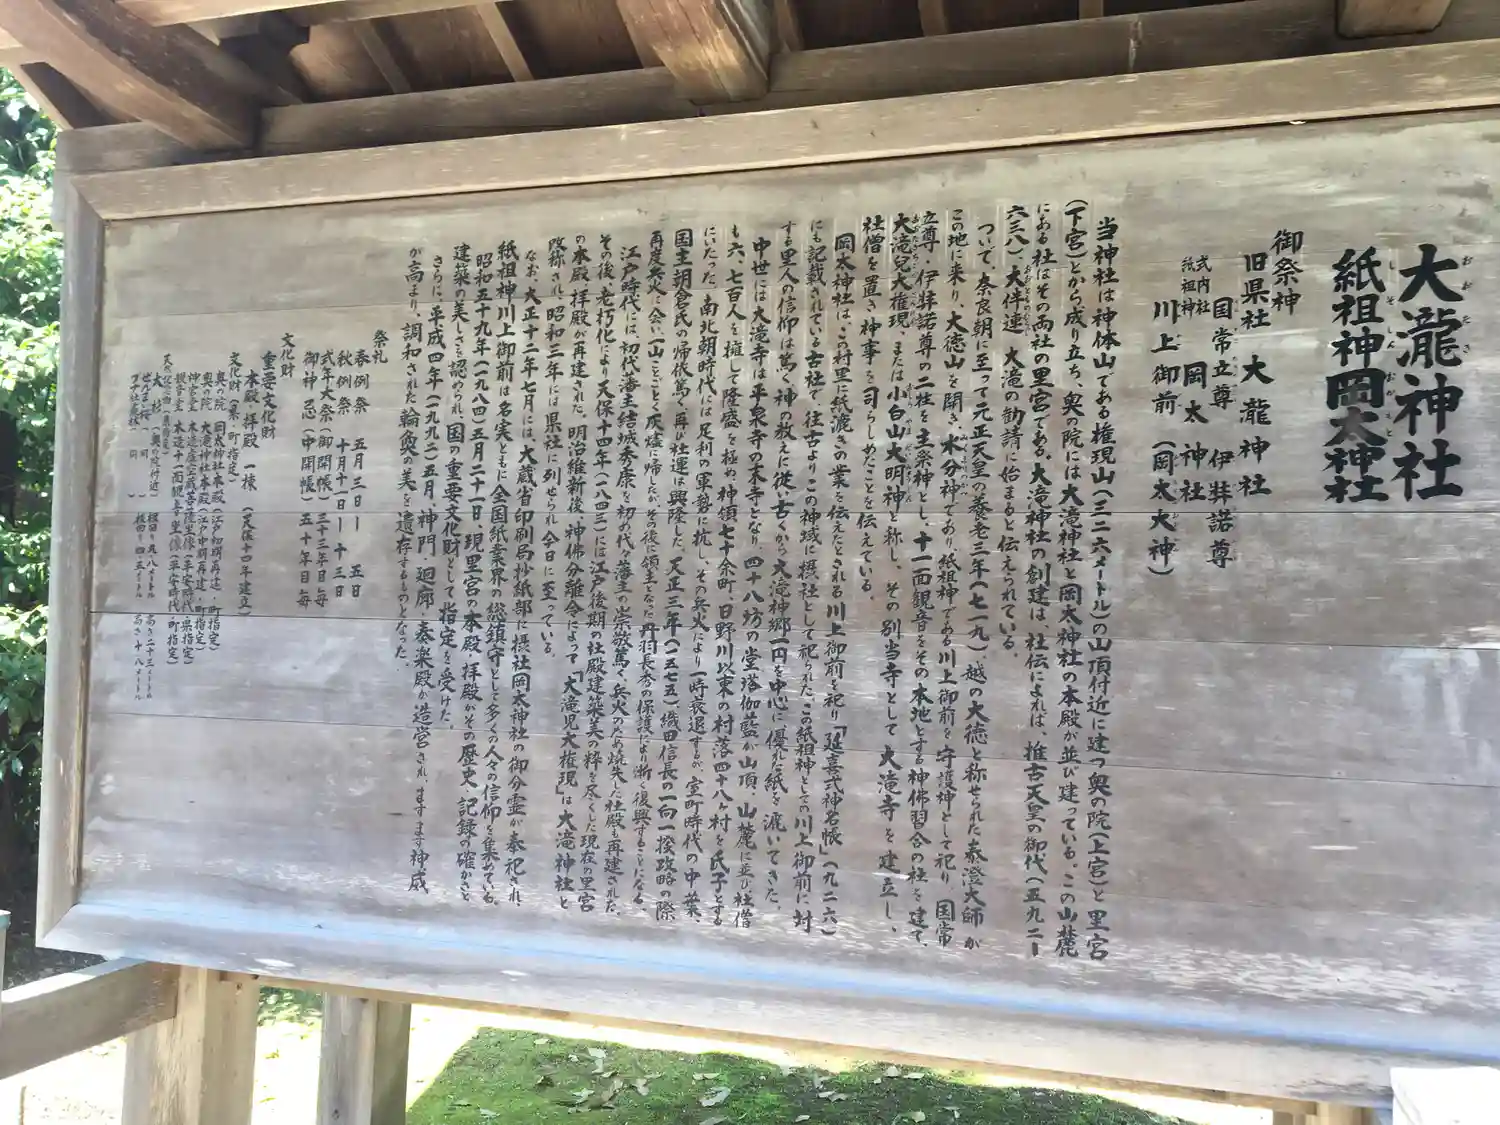 大瀧神社
紙祖神岡太神社
御祭神
旧県社 大瀧神社
国常立尊 伊弉諾尊
式内社 紙祖神 岡太神社
川上御前(岡太大神)
当神社は神体山である権現山(三二六メートル)の山頂付近に建つ奥の院(上宮)と里宮
(下宮)とから成り立ち、奥の院には大滝神社と岡太神社の本殿が並び建っている。この山麓
にある社はその両社の里宮である。大滝神社の創建は、社伝によれば、推古天皇の御代(五九二ー
六三八)、大伴連、大滝の勧請に始まると伝えられている。
ついで、奈良朝に至って元正天皇の養老三年(七一九)、越の大徳と称せられた泰澄大師が
この地に来り、大徳山を開き、水分神であり紙祖神である川上御前を守護神として祀り、国常
立尊・伊弉諾尊の二柱を主祭神とし、十一面観音をその本地とする神佛習合の社を建て、
大滝兒大権現、または小白山大明神と称し、その別当寺として大滝寺を建立し、
社僧を置き神事を司らしめたことを伝えている。
岡太神社は、この村里に紙漉きの業を伝えたとされる川上御前を祀り「延喜式神名帳」(九二六)
にも記載されている古社で、往古よりこの神域に摂社として祀られた。この紙祖神としての川上御前に対
する里人の信仰は篤く、神の教えに従い古くから大滝神郷一円を中心に、優れた紙を漉いてきた。
中世には大滝寺は平泉寺の末寺となり、四十八坊の堂塔伽藍が山頂、山麓に並び社僧
も六、七百人を擁して隆盛を極め、神領七十余町、日野川以東の村落四十八ヶ村を氏子とする
にいたった。南北朝時代には足利の軍勢に抗し、その兵火により一時衰退するが、室町時代の中葉、
国主朝倉氏の帰依篤く、再び社運は興隆した。天正三年(一五七五)、織田信長の一向一揆攻略の際
再度兵火に会い一山ことごとく灰燼に帰したがその後に領主となった丹羽長秀の保護により漸く復興することになる。
江戸時代には、初代藩主結城秀康を初め代々藩主の崇敬篤く、兵火のため焼失した社殿も再建された。
その後、老朽化により天保十四年(一八四三)には江戸後期の社殿建築美の粋を尽くした現在の里宮
の本殿、拝殿が再建された。明治維新後、神佛分離令によって「大滝児大権現」は大滝神社と
改称され、昭和三年には県社に列せられ今日に至っている。
なお、大正十二年七月には、大蔵省印刷局抄紙部に摂社岡太神社の御分霊が奉祀され、
紙祖神川上御前は名実ともに全国紙業界の総鎮守として多くの人々の信仰を集めている。
昭和五十九年(一九八四)五月二十一日、現里宮の本殿、拝殿がその歴史、記録の確かさと
建築の美しさを認められ、国の重要文化財として指定を受けた。
さらに、平成四年(一九九二)五月 神門、廻廊、奏楽殿が造営され、ますます神威
が高まり、調和された輪奐の美を遺存するものとなった。
祭礼
春例祭 五月三日ー 五日
秋例祭 十月十一日ー十三日
式年大祭(御開帳) 三十三年目毎
御神忌(中開帳) 五十年目毎
文化財
重要文化財
本殿・拝殿 一棟 (天保十四年建立)
文化財(県・町指定)
奥の院 岡太神社本殿(江戸初期再建・町指定)
奥の院 大滝神社本殿(江戸中期再建・町指定)
神宮堂 木造虚空蔵菩薩坐像(平安時代・県指定)
観音堂 木造十一面観音坐像(平安時代・町指定)